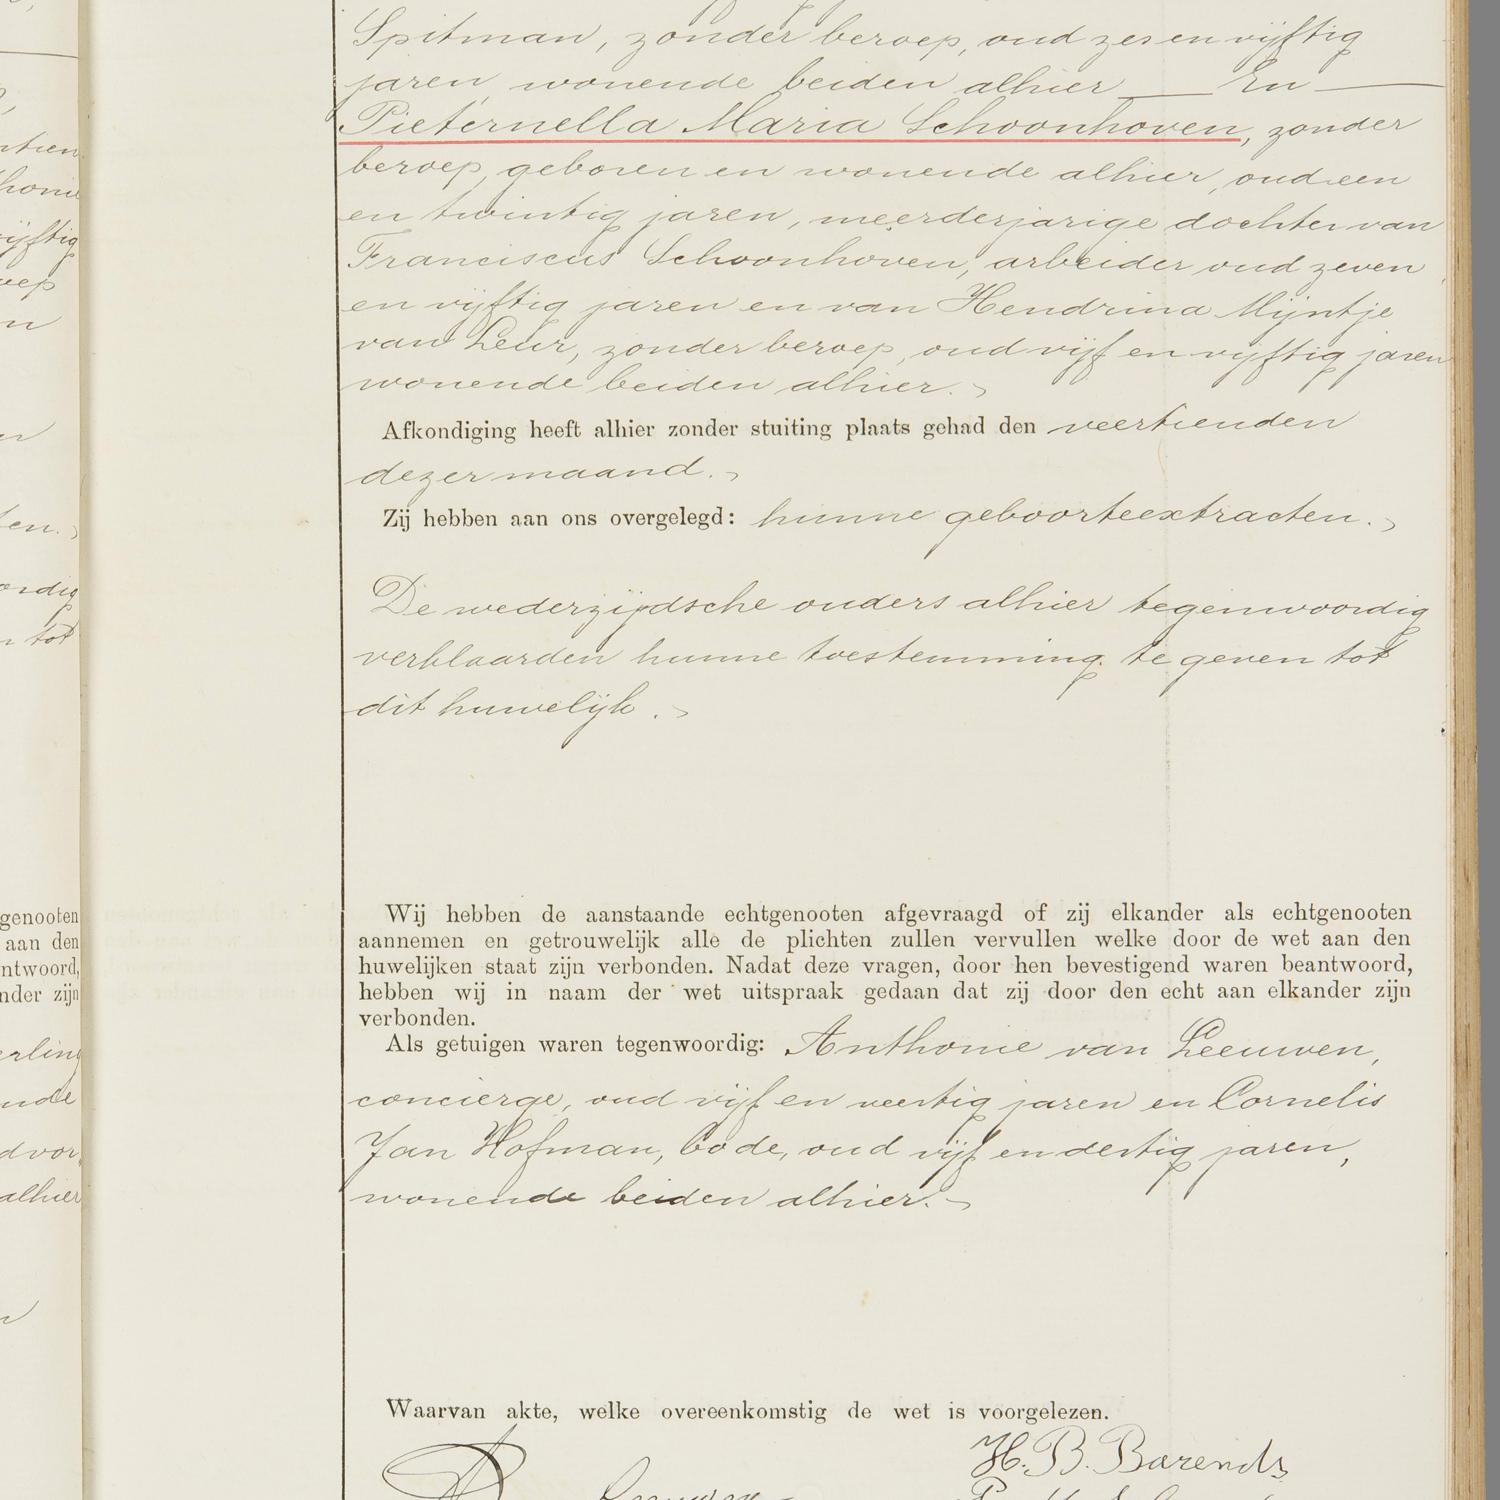 Spitman, zonder beroep, oud zes en vijftig
jaren, wonende beiden alhier — En —
Pieternella Maria Schoonhoven, zonder
beroep, geboren en wonende alhier, oud een
en twintig jaren, meerderjarige dochter van
Franciscus Schoonhoven, arbeider oud zeven
en vijftig jaren en van Hendrina Mijntje
van Leur, zonder beroep, oud vijf en vijftig jaren
wonende beiden alhier.
Afkondiging heeft alhier zonder stuiting plaats gehad den veertienden
dezer maand.
Zij hebben aan ons overgelegd: hunne geboorteextracten.
De wederzijdsche ouders alhier tegenwoordig
verklaarden hunne toestemming te geven tot
dit huwelijk.
Wij hebben de aanstaande echtgenooten afgevraagd of zij elkander als echtgenooten
aannemen en getrouwelijk alle de plichten zullen vervullen welke door de wet aan den
huwelijken staat zijn verbonden. Nadat deze vragen, door hen bevestigend waren beantwoord,
hebben wij in naam der wet uitspraak gedaan dat zij door den echt aan elkander zijn
verbonden.
Als getuigen waren tegenwoordig: Anthonie van Leeuwen,
concierge, oud vijf en veertig jaren en Cornelis
Jan Hofman, bode, oud vijf en dertig jaren,
wonende beiden alhier.
Waarvan akte, welke overeenkomstig de wet is voorgelezen.
H. B. Barends